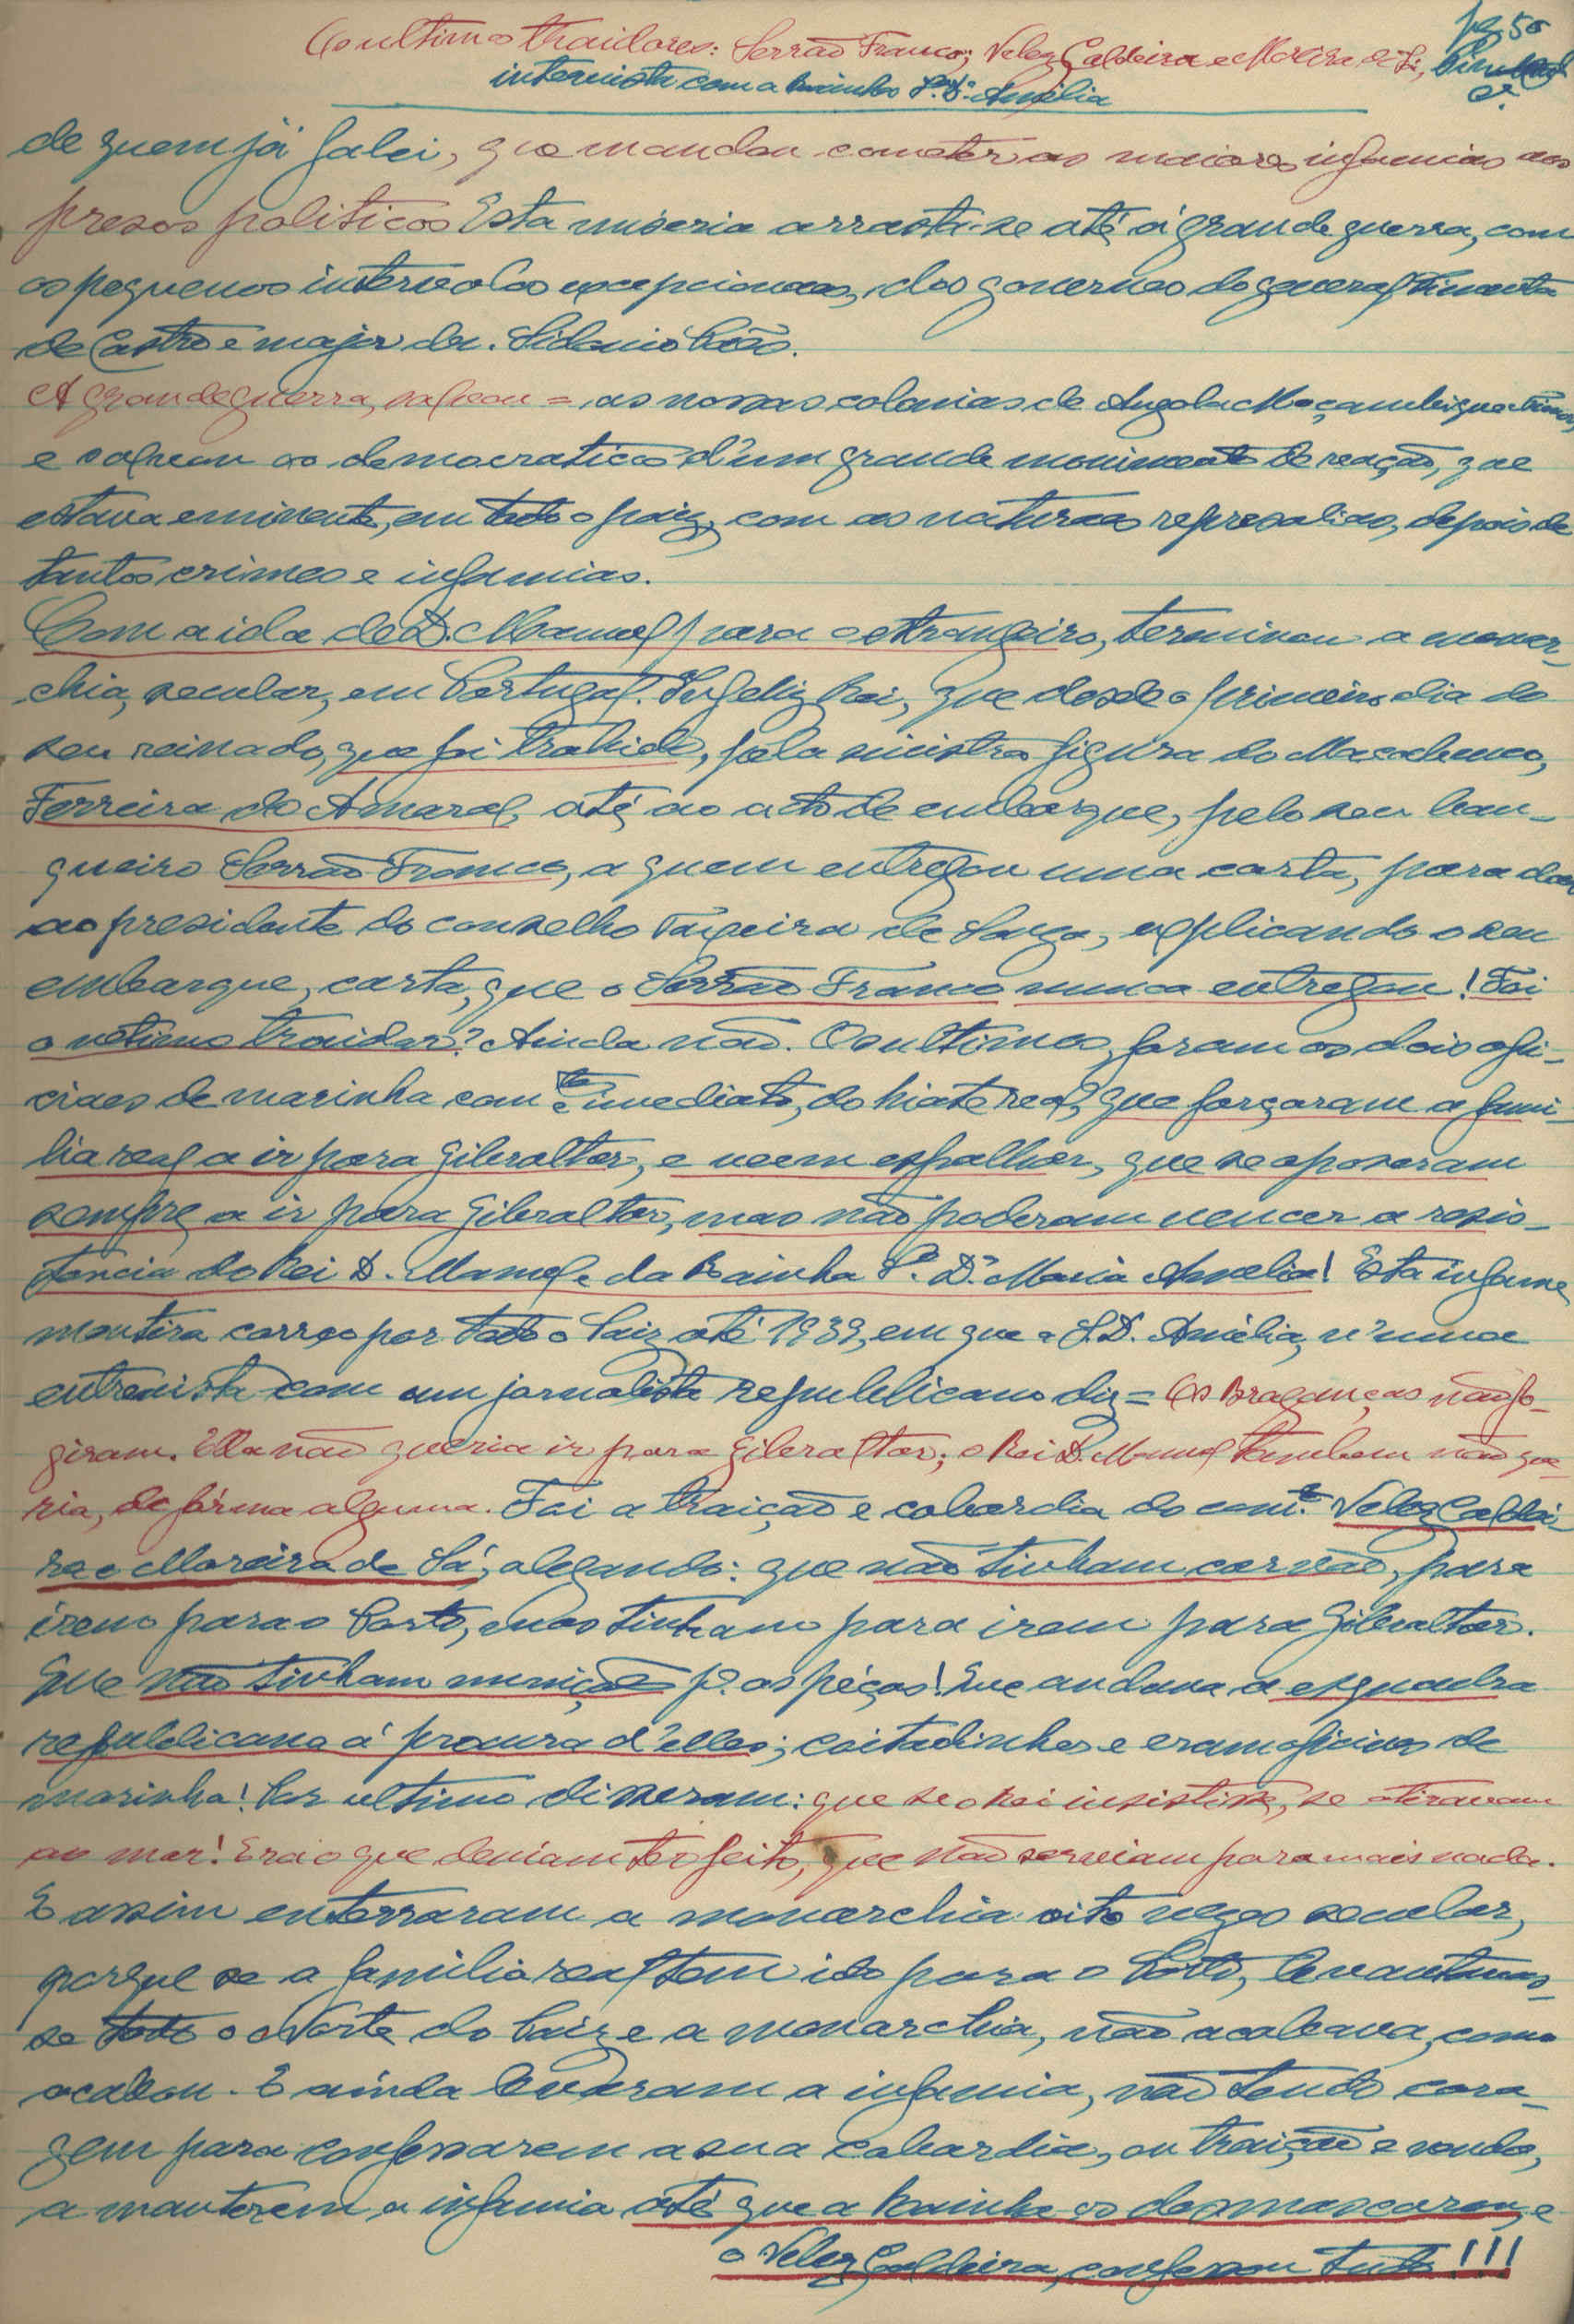 Os ultimos traidores: Serrão Franco; Velez Caldeira e Moreira de Sá; pg 50
intervista com a Rainha S.ª D.ª Amelia
de quem já falei, que mandou cometer as maiores infamias aos
presos politicos Esta miseria arrasta-se até á grande guerra, com
os pequenos intervalos excepcionaes, dos governos do general Pimenta
de Castro e major dr. Sidonio Paes.
A grande guerra, salvou = as nossas colonias de Angola Moçambique e Timor,
e salvou os democraticos d'um grande movimento de reação, que
estava eminente, em todo o paiz, com as naturaes represalias, depois de
tantos crimes e infamias.
Com a ida de D. Manuel para o estrangeiro, terminou a monar-
chia, secular, em Portugal. Infeliz Rei, que desde o primeiro dia do
seu reinado, que foi trahido, pela sinistra figura do Macachenco,
Ferreira do Amaral, até ao acto de embarque, pelo seu ban-
queiro Serrão Franco, a quem entregou uma carta, para dar
ao presidente do conselho Teixeira de Souza, explicando o seu
embarque, carta, que o Serrão Franco nunca entregou! Foi
o ultimo traidor? Ainda não. Os ultimos, foram os dois ofi-
ciaes de marinha com.te e imediato, do hiate real, que forçaram a fami-
lia real a ir para Gibraltar, e veem espalhar, que se oposeram
sempre a ir para Gibraltar, mas não poderam vencer a resis-
tencia do Rei D. Manuel e da Rainha S.ª D.ª Maria Amelia! Esta infame
mentira correo por todo o Paiz até 1939, em que a S.D. Amélia, n'uma
entrevista com um jornalista republicano diz = Os Braganças não fo-
giram. Ella não queria ir para Gibraltar; o Rei D. Manuel tambem não que-
ria, de fórma alguma. Foi a traição e cobardia do com.te Velez Caldei-
ra e Moreira de Sá, alegando: que não tinham carvão, para
irem para o Porto, mas tinham para irem para Gibraltar.
Que não tinham munições p.ª as péças! Que andava a esquadra
republicana á procura d'elles; coitadinhos e eram oficiaes de
marinha! Por ultimo disseram: que se o Rei insistisse, se atiravam
ao mar! Era o que deviam ter feito, que não serviam para mais nada.
E assim enterraram a monarchia oito vezes secular,
porque se a familia real tem ido para o Porto, levantava-
se todo o Norte do Paiz e a monarchia, não acabava, como
acabou. E ainda levaram a infamia, não tendo cora-
gem para confessarem a sua cobardia, ou traição e
a manterem a infamia até que a Rainha os desmascarou, e
o Velez Caldeira, confessou tudo!!!